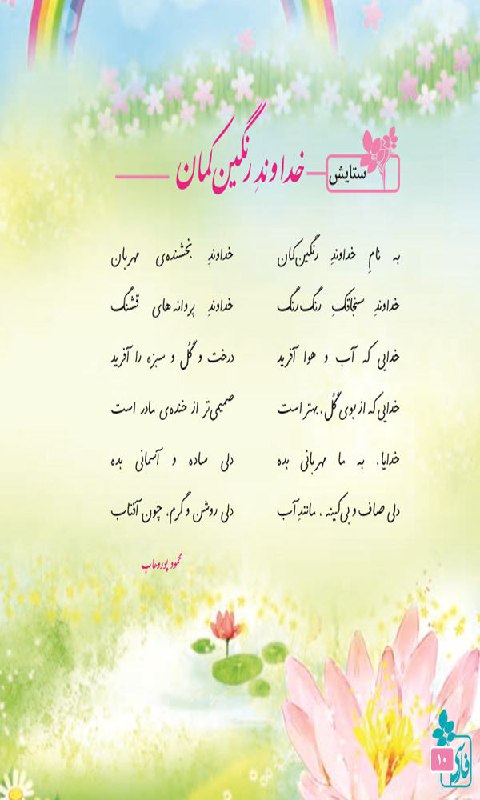 ستایش
خداوندِ رنگین‌کمان
به نامِ خداوندِ رنگین‌کمان خداوندِ بخشنده‌ی مهربان
خداوندِ سنجاقکِ رنگ‌رنگ خداوندِ پروانه‌های قشنگ
خدایی که آب و هوا آفرید درخت و گُل و سبزه را آفرید
خدایی که از بوی گُل، بهتر است صمیمی‌تر از خنده‌ی مادر است
خدایا، به ما مهربانی بده دلی ساده و آسمانی بده
دلی صاف و بی‌کینه، مانندِ آب دلی روشن و گرم، چون آفتاب
محمود پوروهاب
۱۰